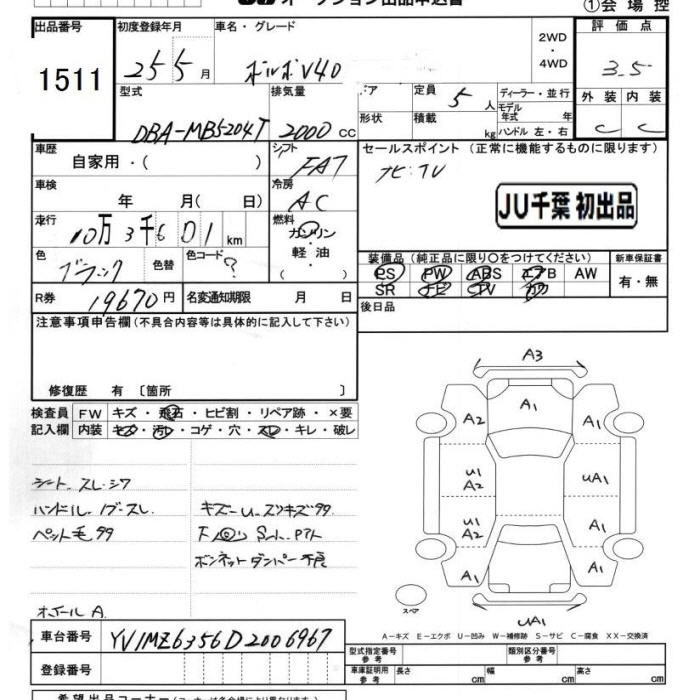 ①会場控
出品番号 初度登録年月 車名・グレード 評価点
1511 25 5月 ボルボV40 2WD・4WD 3.5
型式 排気量 定員 5人 ディーラー・並行 外装 内装
DBA-MB5204T 2000cc 形状 積載 kg モデル年式 年 ハンドル 左・右 C C
車歴 シフト セールスポイント (正常に機能するものに限ります)
自家用・( ) FAT ナビ・TV
車検 冷房 JU千葉 初出品
年 月( 日) AC
走行 燃料
10万3千601km ガソリン・軽油・( )
装備品(純正品に限り○をつけてください) 新車保証書
色 ブラック 色替 色コード ? PS PW ABS エアB AW 有・無
SR ナビ TV カワ
R券 19670円 名変通知期限 月 日 後日品
注意事項申告欄(不具合内容等は具体的に記入して下さい)
修復歴 有〔箇所 〕
検査員 FW キズ・飛石・ヒビ割・リペア跡・×要
記入欄 内装 キズ・汚レ・コゲ・穴・スレ・キレ・破レ
A3
A2 A1 A1
U1 A2 UA1
U1 A2 A1
A1 A1
UA1
スペア
シート スレ.シワ
ハンドル.ノブ.スレ キズ
ペット毛
ボンネットダンパー不良
ホイール A
A-キズ E-エクボ U-凹み W-補修跡 S-サビ C-腐食 XX-交換済
車台番号 YV1MZ6356D2006967
型式指定番号 参考 類別区分番号 参考
登録番号 車庫証明用 参考 長さ cm 幅 cm 高さ cm